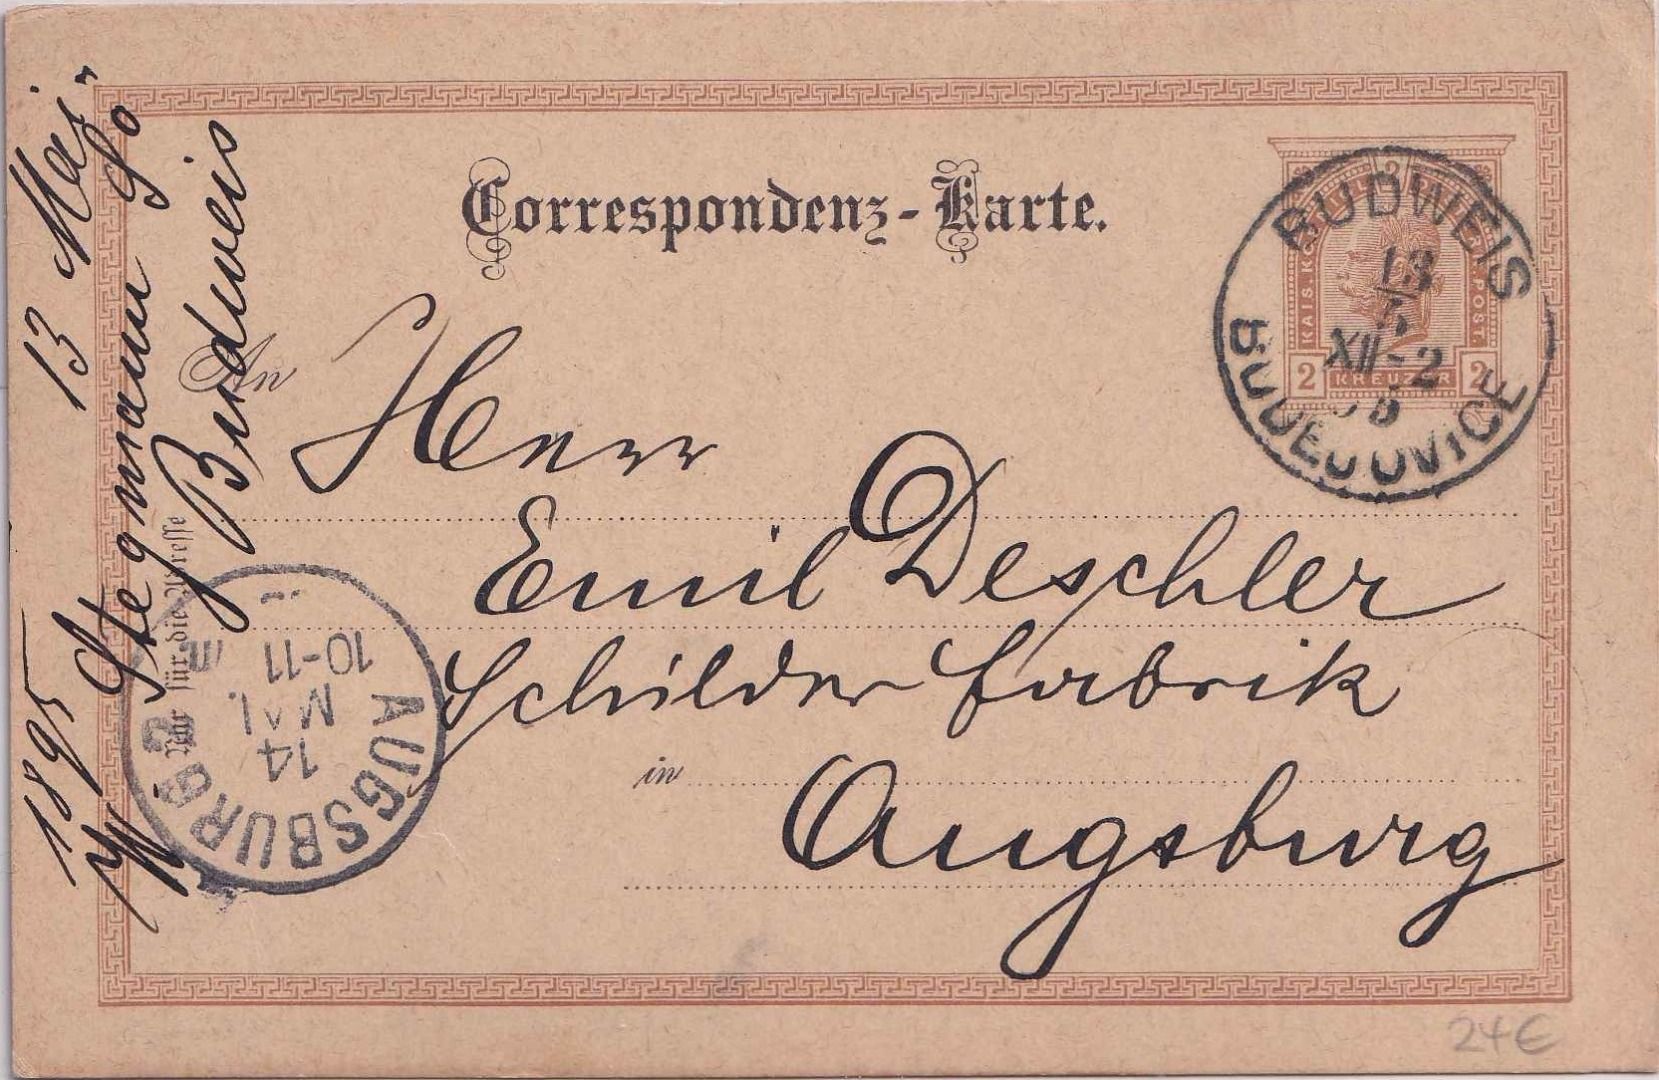 Correspondenz-Karte.
2
KAIS. KÖNIGL. ÖSTERR. POST.
2 KREUZER 2
BUDWEIS
13
5
XII-2
95
BUDĚJOVICE
An
Herr
Emil Deschler
Schilder fabrik
in
Augsburg
Nur für die Adresse
1895 13 Mai
Stegmann
Budweis
AUGSBURG 2
14
MAI.
10-11
24€